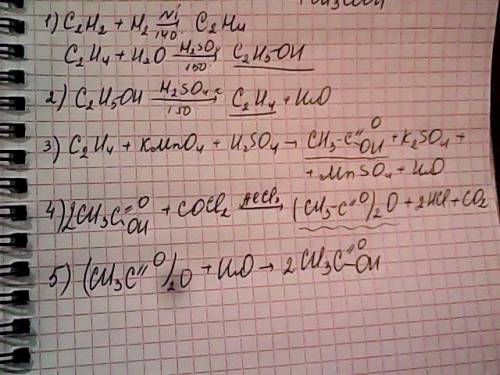 1) C₂H₂ + H₂ —Ni/140→ C₂H₄
C₂H₄ + H₂O —H₂SO₄/150→ C₂H₅OH
2) C₂H₅OH —H₂SO₄/150→ C₂H₄ + H₂O
3) C₂H₄ + KMnO₄ + H₂SO₄ → CH₃-C(=O)OH + K₂SO₄ +
+ MnSO₄ + H₂O
4) 2CH₃C(=O)OH + COCl₂ —AlCl₃→ (CH₃-C=O)₂O + 2HCl + CO₂
5) (CH₃C=O)₂O + H₂O → 2CH₃C(=O)OH